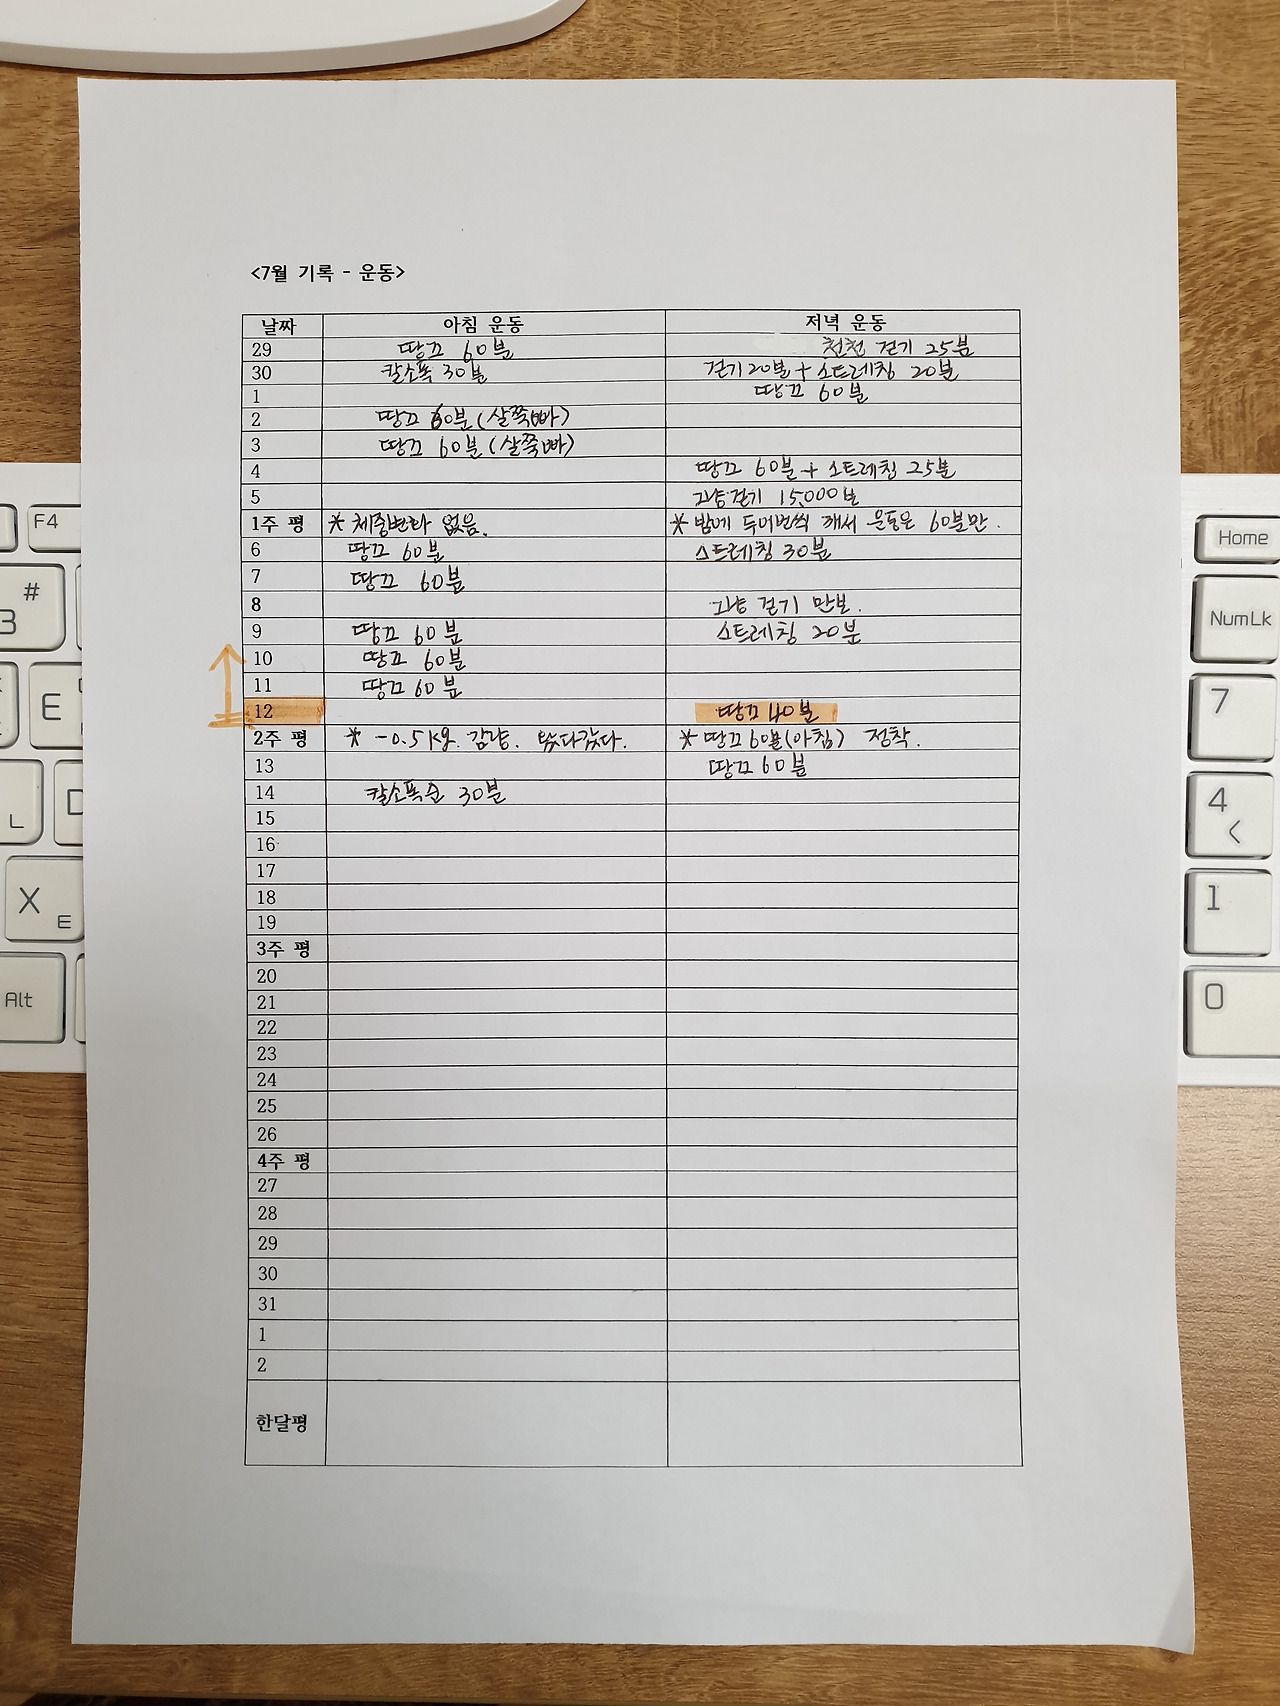 <7월 기록 - 운동>
날짜 아침 운동 저녁 운동
29 땅끄 60분 천천 걷기 25분
30 칼소폭 30분 걷기 20분 + 스트레칭 20분
1 땅끄 60분
2 땅끄 60분 (살쭉빠)
3 땅끄 60분 (살쭉빠)
4 땅끄 60분 + 스트레칭 25분
5 걷기 15,000보
1주 평 * 체중변화 없음. * 밤에 두어번씩 깨서 운동은 60분만.
6 땅끄 60분 스트레칭 30분
7 땅끄 60분
8 걷기 만보.
9 땅끄 60분 스트레칭 20분
10 땅끄 60분
11 땅끄 60분
12 땅끄 40분
2주 평 * -0.5kg. 감량. 왔다갔다. * 땅끄 60분(아침) 정착.
13 땅끄 60분
14 칼소폭순 30분
15
16
17
18
19
3주 평
20
21
22
23
24
25
26
4주 평
27
28
29
30
31
1
2
한달평
F4
#
3
E
ㄷ
ㄴ
X
ㅌ
Alt
Home
NumLk
7
4
<
1
0